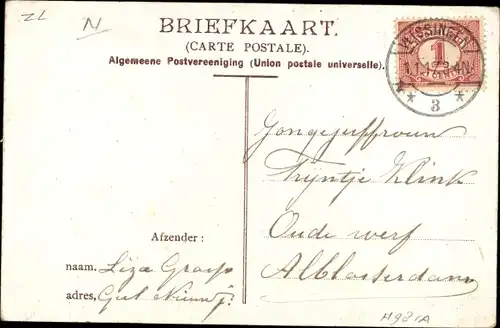 ZL
N
BRIEFKAART.
(CARTE POSTALE).
Algemeene Postvereeniging (Union postale universelle).
VLISSINGEN
1
3
Jongejuffrouw
Trijntje Klink
Oude werf
Alblasserdam
Afzender:
naam. Liza
adres. Gel Nieuwj.
M981A